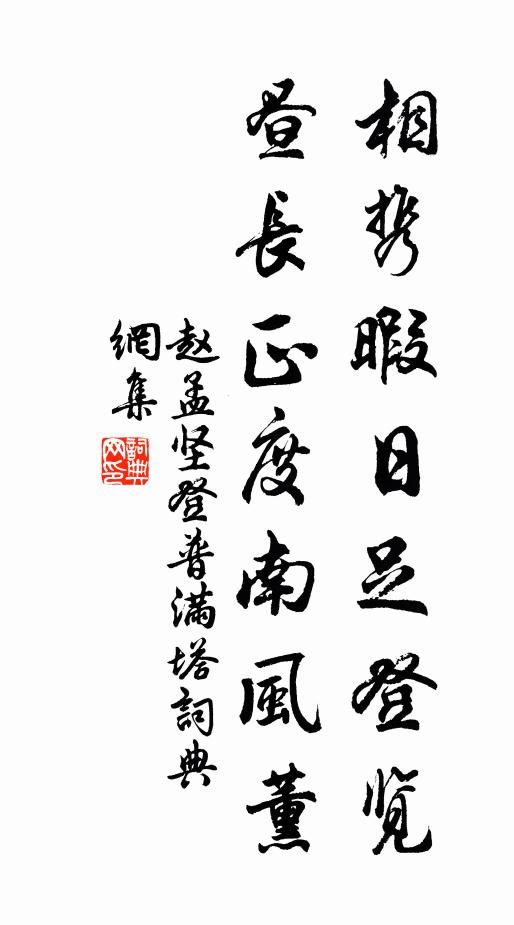 相携暇日足登览
昼長正度南風薰
赵孟坚登普滿塔詞典
網集
詞典
网印